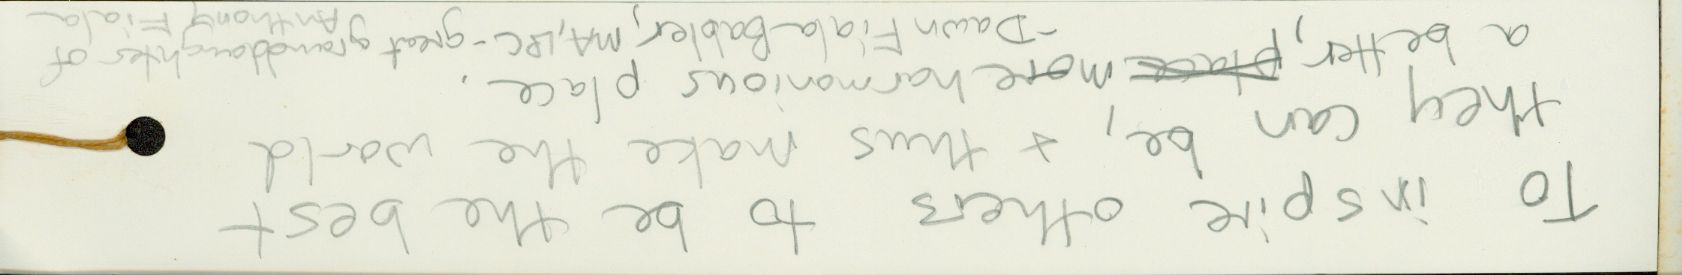 To inspire others to be the best
they can be, + thus make the world
a better, place more harmonious place.
-Dawn Fiala Babler, MA, LPC - great granddaughter of
Anthony Fiala